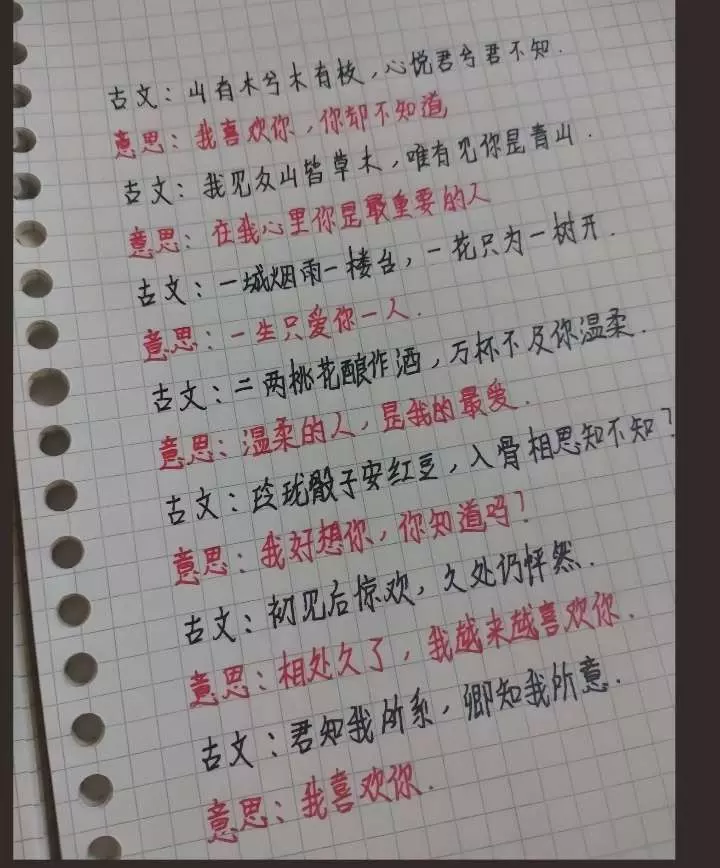 古文：山有木兮木有枝，心悦君兮君不知.
意思：我喜欢你，你却不知道
古文：我见众山皆草木，唯有见你是青山.
意思：在我心里你是最重要的人
古文：一城烟雨一楼台，一花只为一树开.
意思：一生只爱你一人.
古文：二两桃花酿作酒，万杯不及你温柔.
意思：温柔的人，是我的最爱.
古文：玲珑骰子安红豆，入骨相思知不知？
意思：我好想你，你知道吗？
古文：初见后惊欢，久处仍怦然.
意思：相处久了，我越来越喜欢你.
古文：君知我所系，卿知我所意.
意思：我喜欢你.